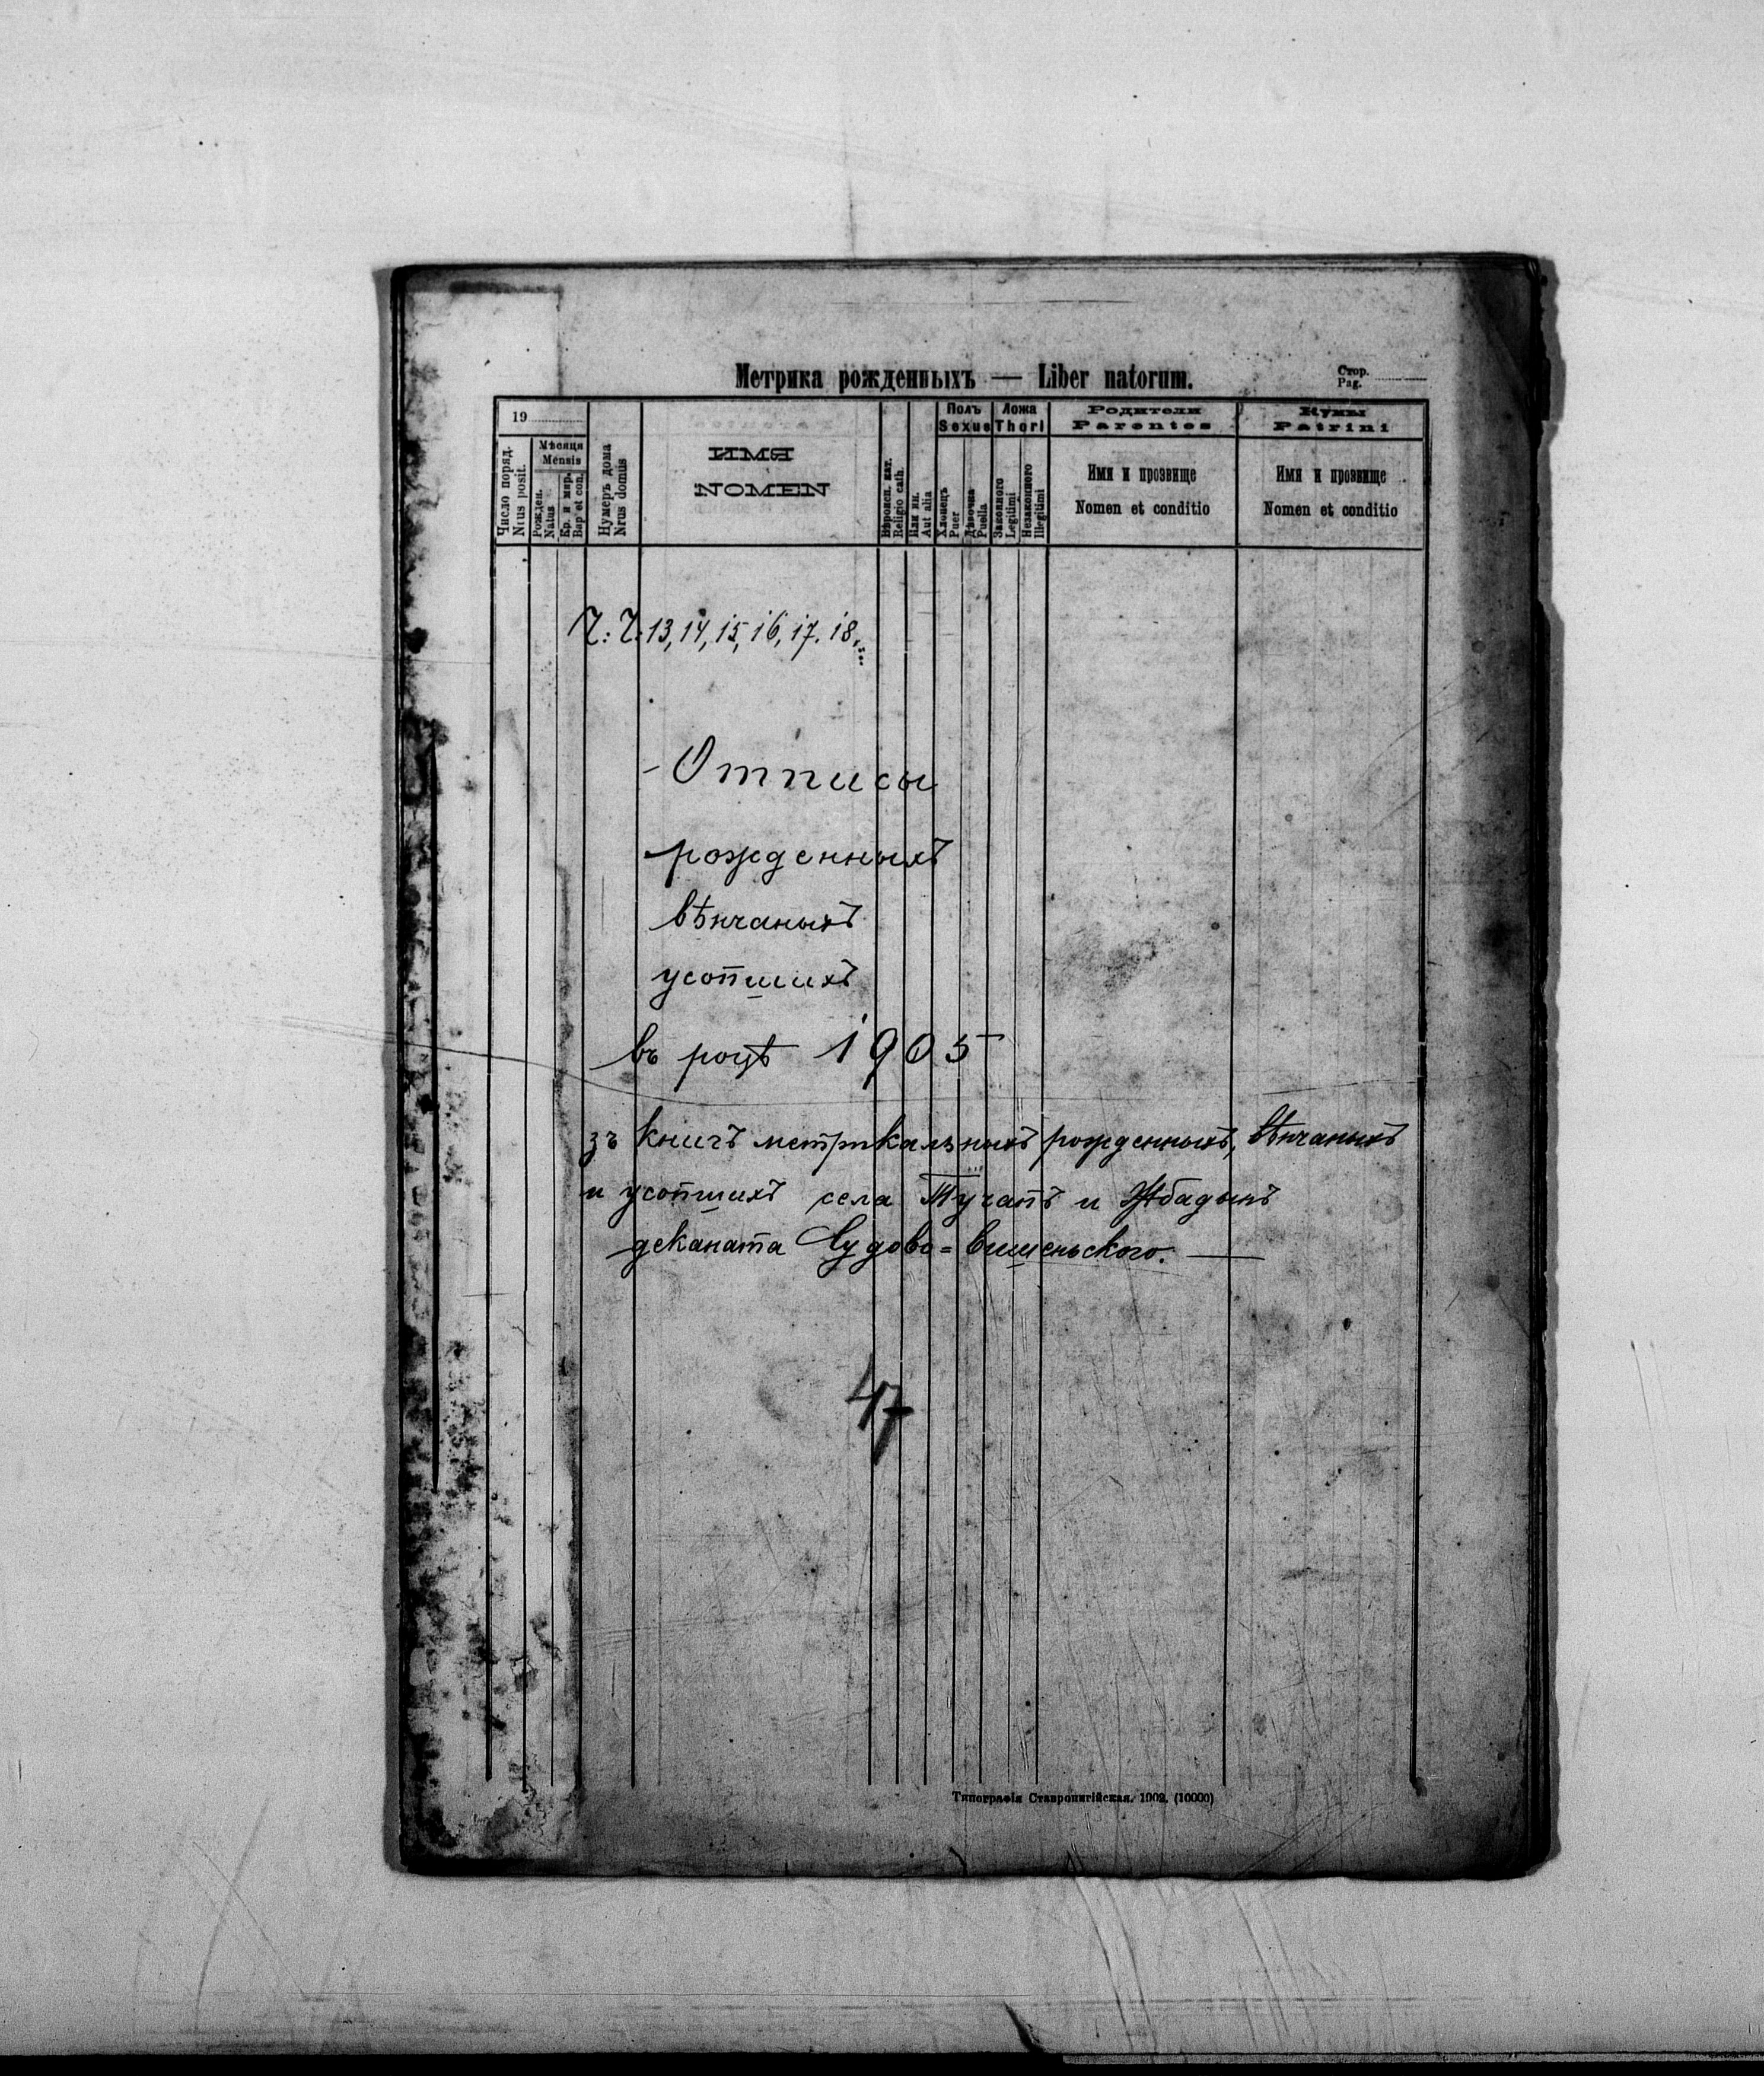 Метрика рожденныхъ — Liber natorum.
Стор.
Pag.
19
Число поряд.
Nrus posit.
Мѣсяця
Mensis
Рожден.
Natus
Кр. и мир.
Bap et con.
Нумеръ дома
Nrus domus
ИМЯ
NOMEN
Вѣроисп. кат.
Religio cath.
Или ин.
Aut alia
Полъ
Sexus
Хлопецъ
Puer
Дѣвочка
Puella
Ложа
Thori
Законного
Legitimi
Незаконного
Illegitimi
Родители
Parentes
Имя и прозвище
Nomen et conditio
Кумы
Patrini
Имя и прозвище
Nomen et conditio
Ч: Ч: 13, 14, 15, 16, 17. 18.
- Отписы
рожденныхъ
вѣнчаныхъ
усопшихъ
въ роцѣ 1905
зъ книгъ метрикальныхъ рожденныхъ, вѣнчаныхъ
и усопшихъ села Тучапъ и Жбадынъ
деканата Судово=вишеньского. —
47
Типографія Ставропигійская. 1902. (10000)